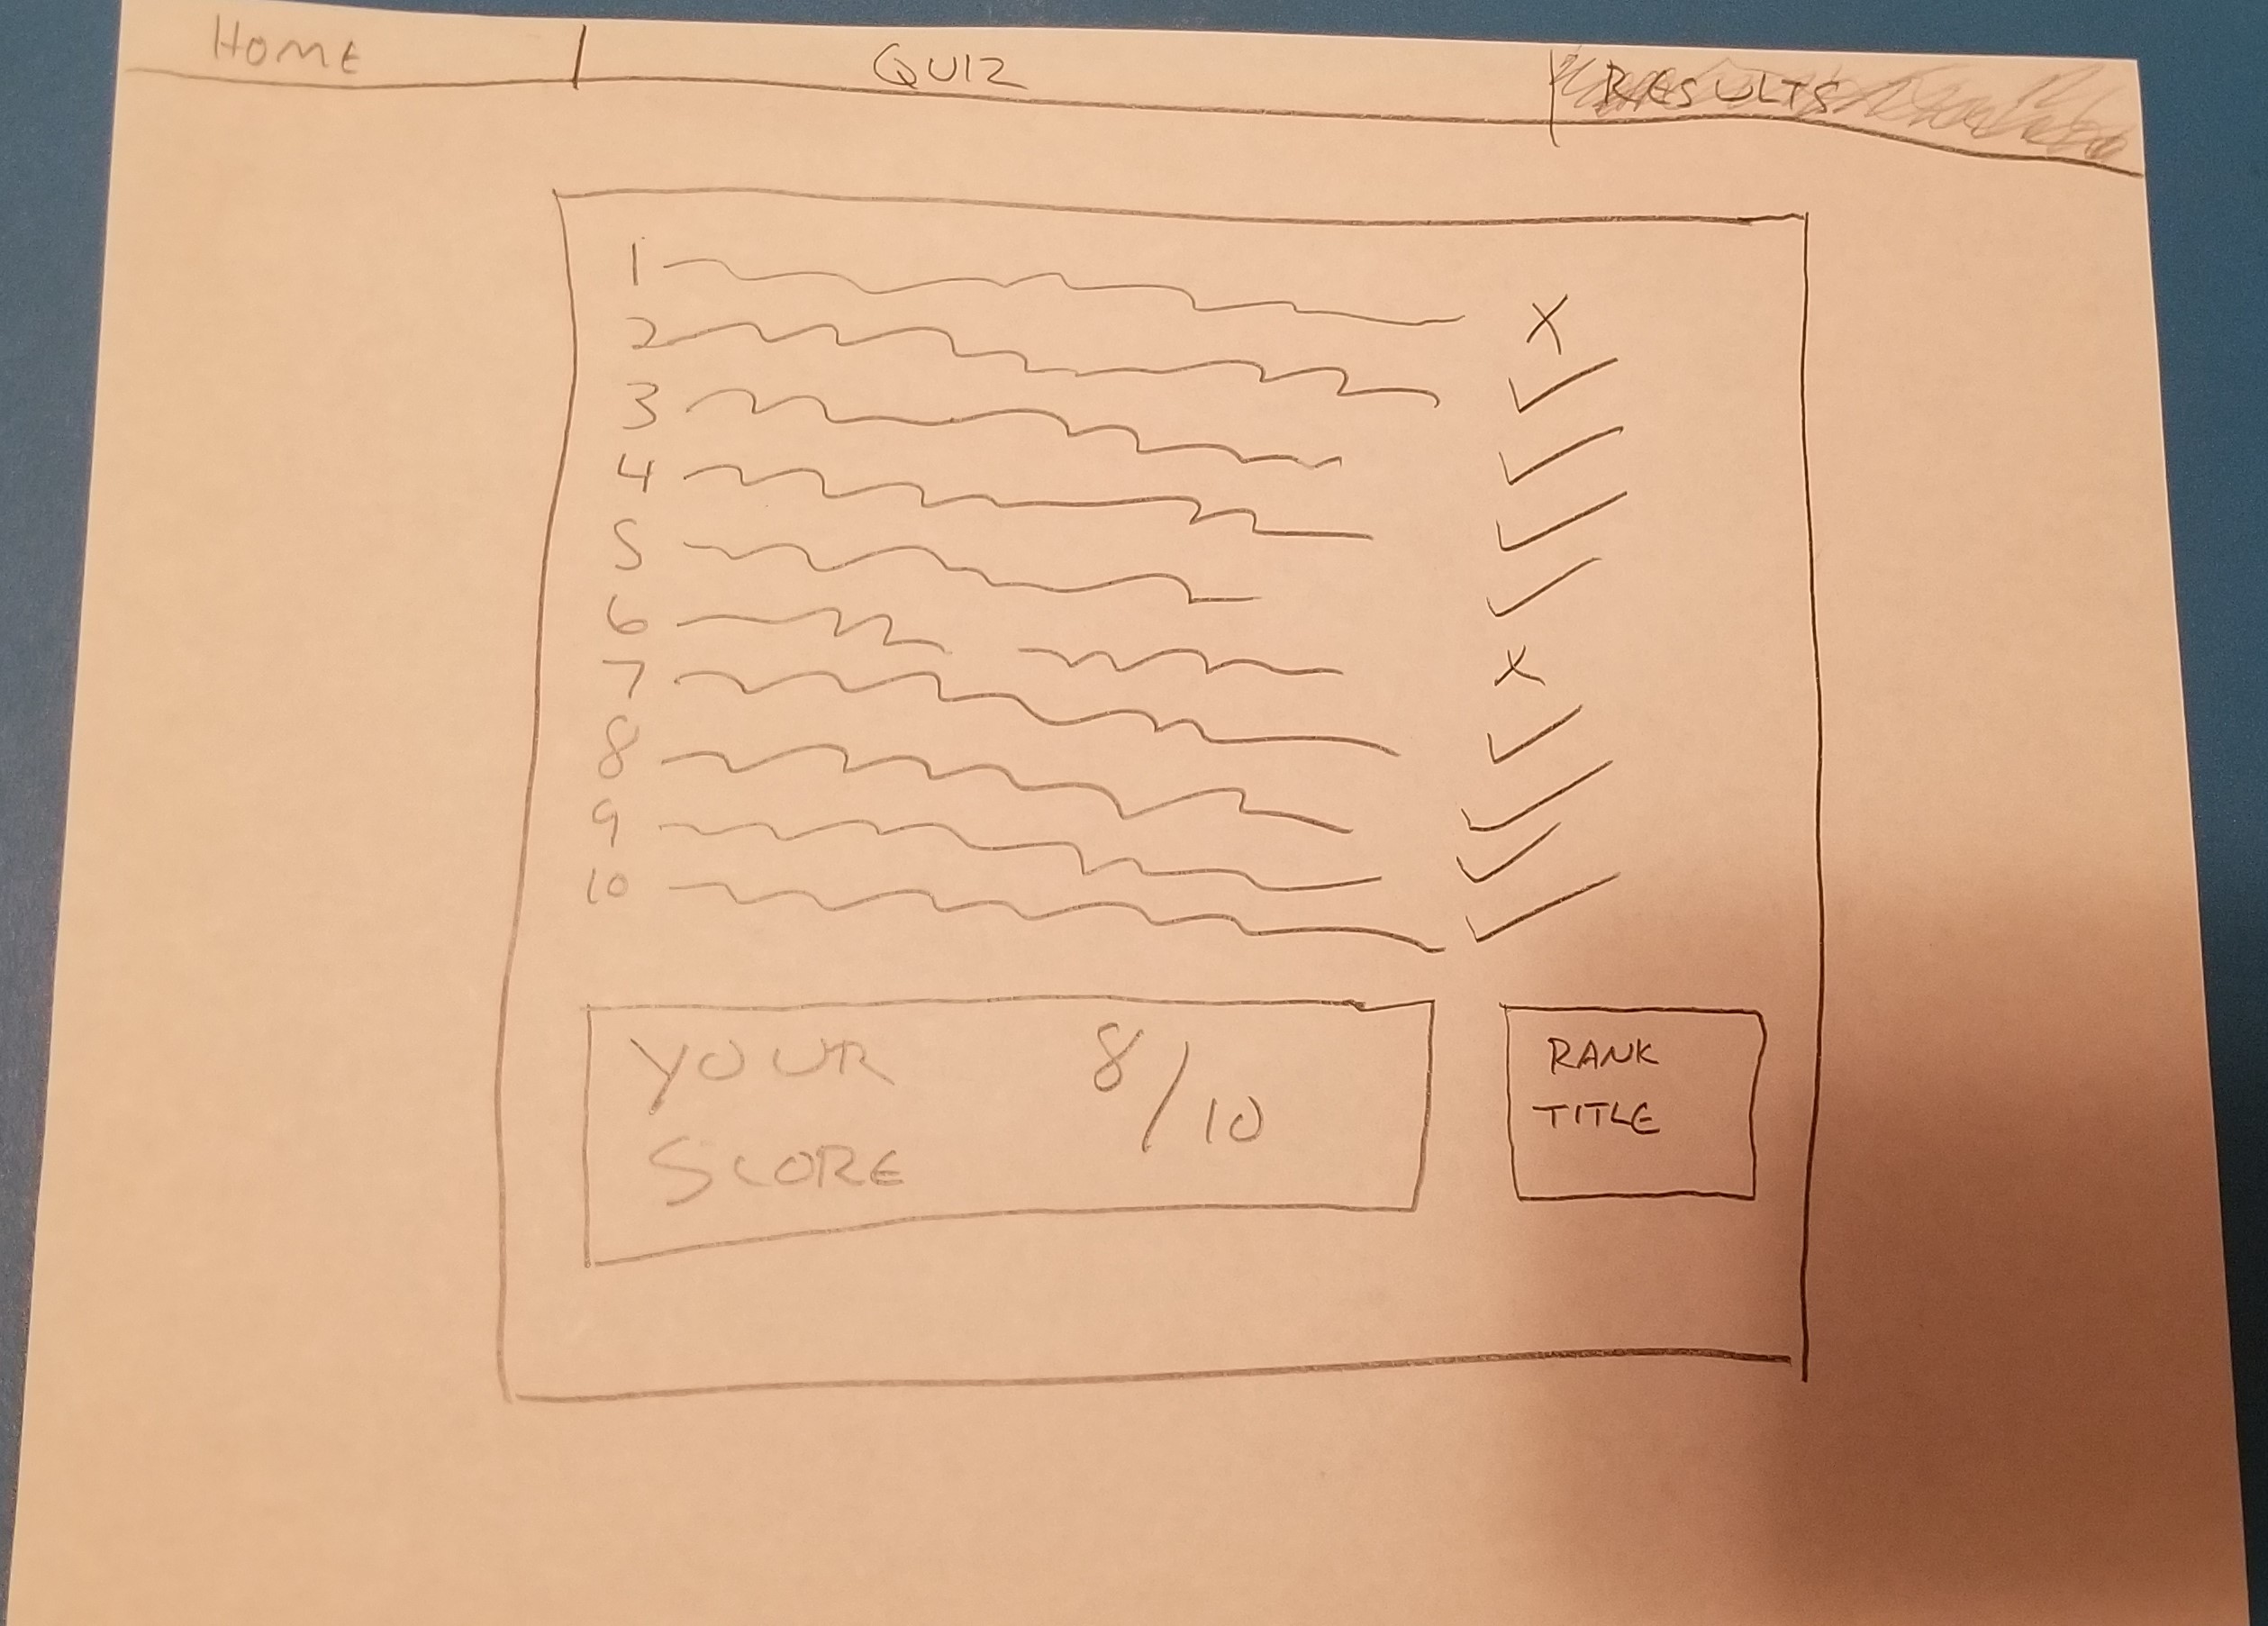 HOME QUIZ RESULTS
1 X
2 ✓
3 ✓
4 ✓
5 ✓
6 X
7 ✓
8 ✓
9 ✓
10 ✓
YOUR 8/10
SCORE
RANK
TITLE